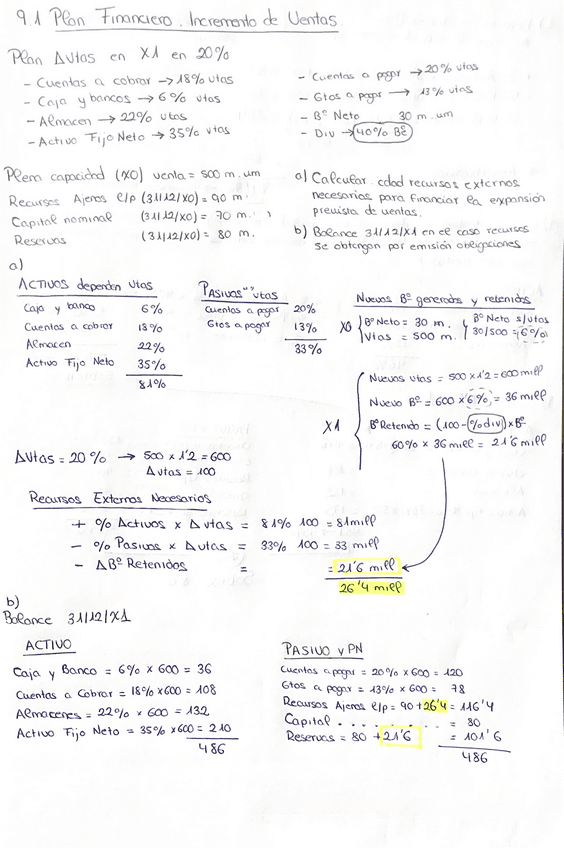 9.1 Plan Financiero. Incremento de Ventas
Plan ΔVtas en X1 en 20%
- Cuentas a cobrar → 18% vtas
- Caja y bancos → 6% vtas
- Almacen → 22% vtas
- Activo Fijo Neto → 35% vtas
- Cuentas a pagar → 20% vtas
- Gtos a pagar → 13% vtas
- Bº Neto 30 m. um
- Div → 40% Bº
Plena capacidad (X0) venta = 500 m. um
Recursos Ajenos l/p (31/12/X0) = 90 m.
Capital nominal (31/12/X0) = 70 m.
Reservas (31/12/X0) = 80 m.
a) Calcular cdad recursos externos
necesarios para financiar la expansión
prevista de ventas.
b) Balance 31/12/X1 en el caso recursos
se obtengan por emisión obligaciones
a)
ACTIVOS dependen vtas
Caja y banco 6%
Cuentas a cobrar 18%
Almacen 22%
Activo Fijo Neto 35%
81%
PASIVOS " vtas
Cuentas a pagar 20%
Gtos a pagar 13%
33%
Nuevos Bº generados y retenidos
X0 { Bº Neto = 30 m. } Bº Neto s/vtas
Vtas = 500 m. 30/500 = 6%
X1
Nuevas vtas = 500 x 1'2 = 600 mill
Nuevo Bº = 600 x 6% = 36 mill
Bº Retenido = (100 - % div) x Bº
60% x 36 mill = 21'6 mill
ΔVtas = 20% → 500 x 1'2 = 600
ΔVtas = 100
Recursos Externos Necesarios
+ % Activos x ΔVtas = 81% 100 = 81 mill
- % Pasivos x ΔVtas = 33% 100 = 33 mill
- ΔBº Retenidos = = 21'6 mill
26'4 mill
b)
Balance 31/12/X1
ACTIVO
Caja y Banco = 6% x 600 = 36
Cuentas a Cobrar = 18% x 600 = 108
Almacenes = 22% x 600 = 132
Activo Fijo Neto = 35% x 600 = 210
486
PASIVO y PN
Cuentas a pagar = 20% x 600 = 120
Gtos a pagar = 13% x 600 = 78
Recursos Ajenos l/p = 90 + 26'4 = 116'4
Capital . . . . . . . . = 80
Reservas = 80 + 21'6 = 101'6
486